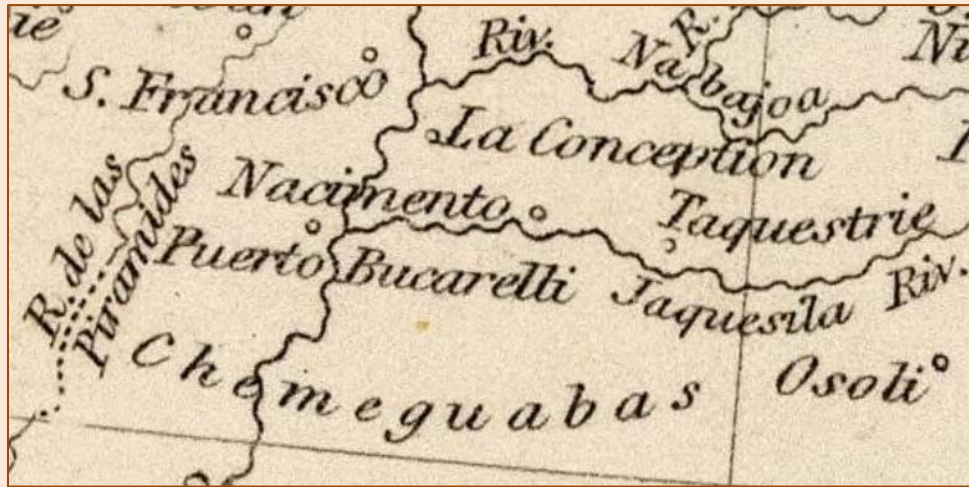 Riv.
R.
Nabajoa
S. Francisco
La Conception
Nacimento
Taquestrie
R. de las
Piramides
Puerto Bucarelli
Jaquesila Riv.
Chemeguabas
Osoli